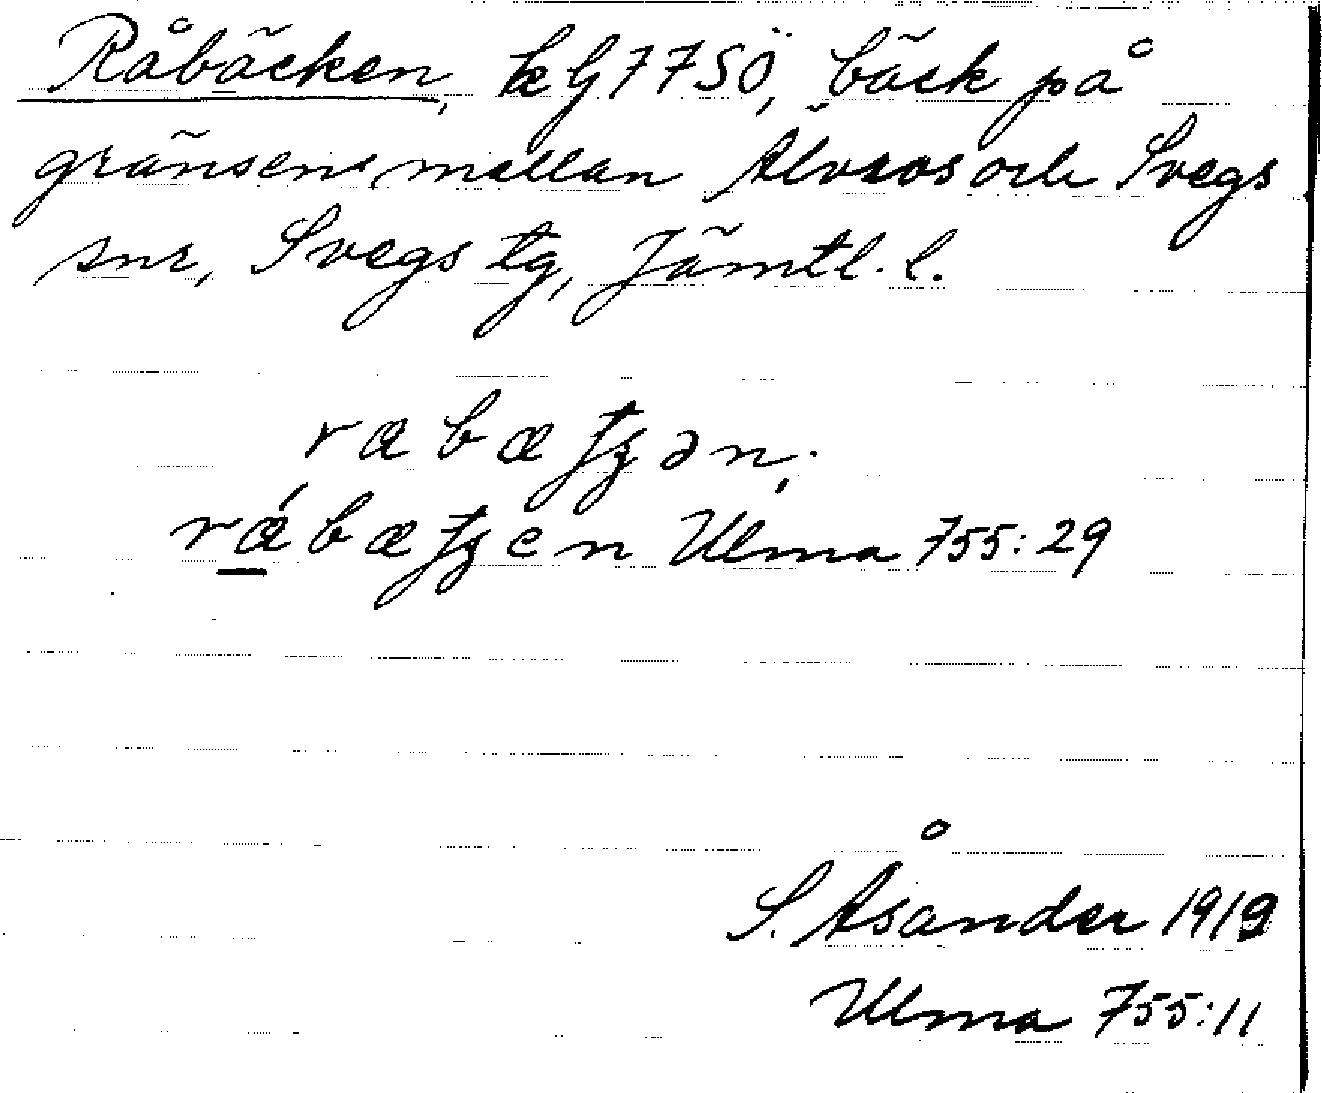 Råbäcken, kbl 77 SÖ, bäck på
gränsen mellan Älvros och Svegs
snr, Svegs tg, Jämtl. l.
ræbæʈʂən;
rǽbæʈʂen Ulma 755:29
S. Åsander 1919
Ulma 755:11